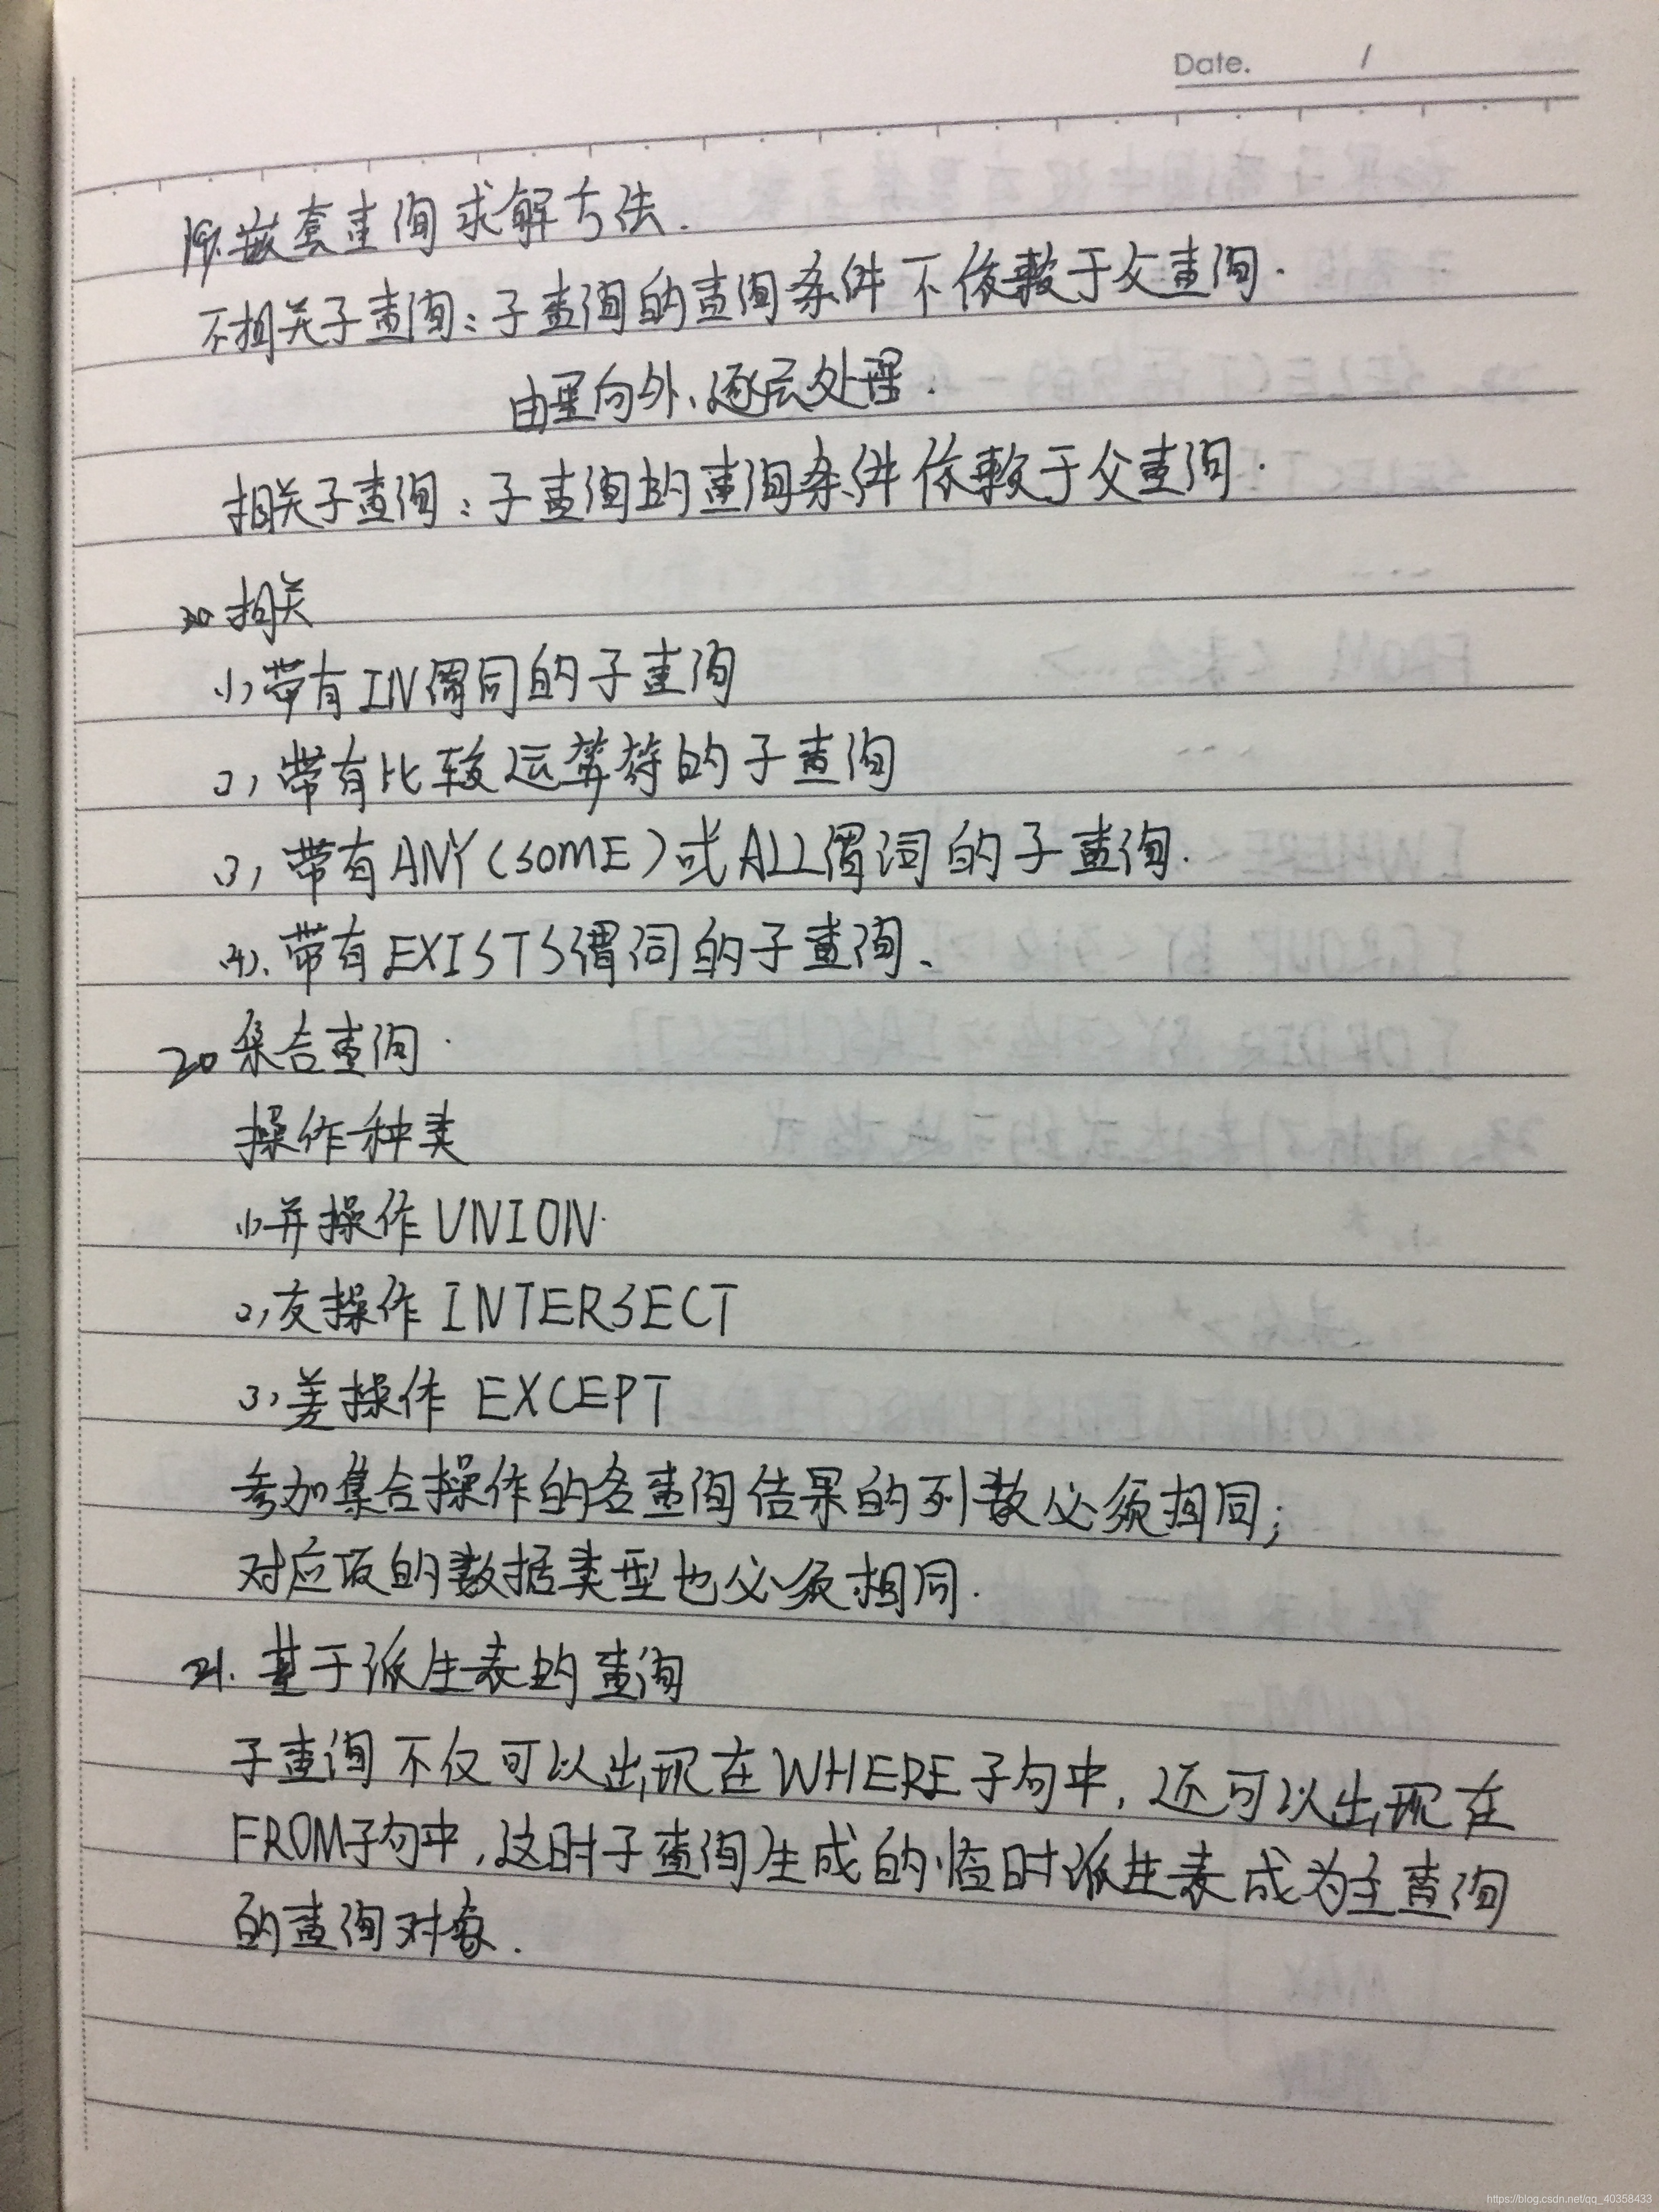 Date. /
19. 嵌套查询求解方法.
不相关子查询:子查询的查询条件不依赖于父查询.
由里向外、逐层处理.
相关子查询:子查询的查询条件依赖于父查询.
相关
(1)带有IN谓词的子查询
(2)带有比较运算符的子查询
(3)带有ANY(SOME)或ALL谓词的子查询.
(4).带有EXISTS谓词的子查询、
20 集合查询.
操作种类
(1)并操作 UNION.
(2)交操作 INTERSECT
(3)差操作 EXCEPT
参加集合操作的各查询结果的列数必须相同;
对应项的数据类型也必须相同.
21. 基于派生表的查询
子查询不仅可以出现在WHERE子句中,还可以出现在
FROM子句中,这时子查询生成的临时派生表成为主查询
的查询对象.
https://blog.csdn.net/qq_40358433